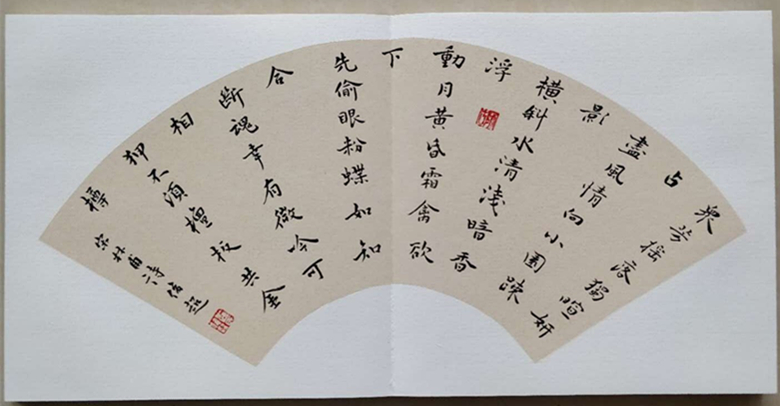 衆芳摇落獨暄妍
占
盡風情向小園疎
影
橫斜水清淺暗香
浮
動月黃昏霜禽欲
下
先偷眼粉蝶如知
合
斷魂幸有微吟可
相
狎不須檀板共金
樽
宋林逋詩